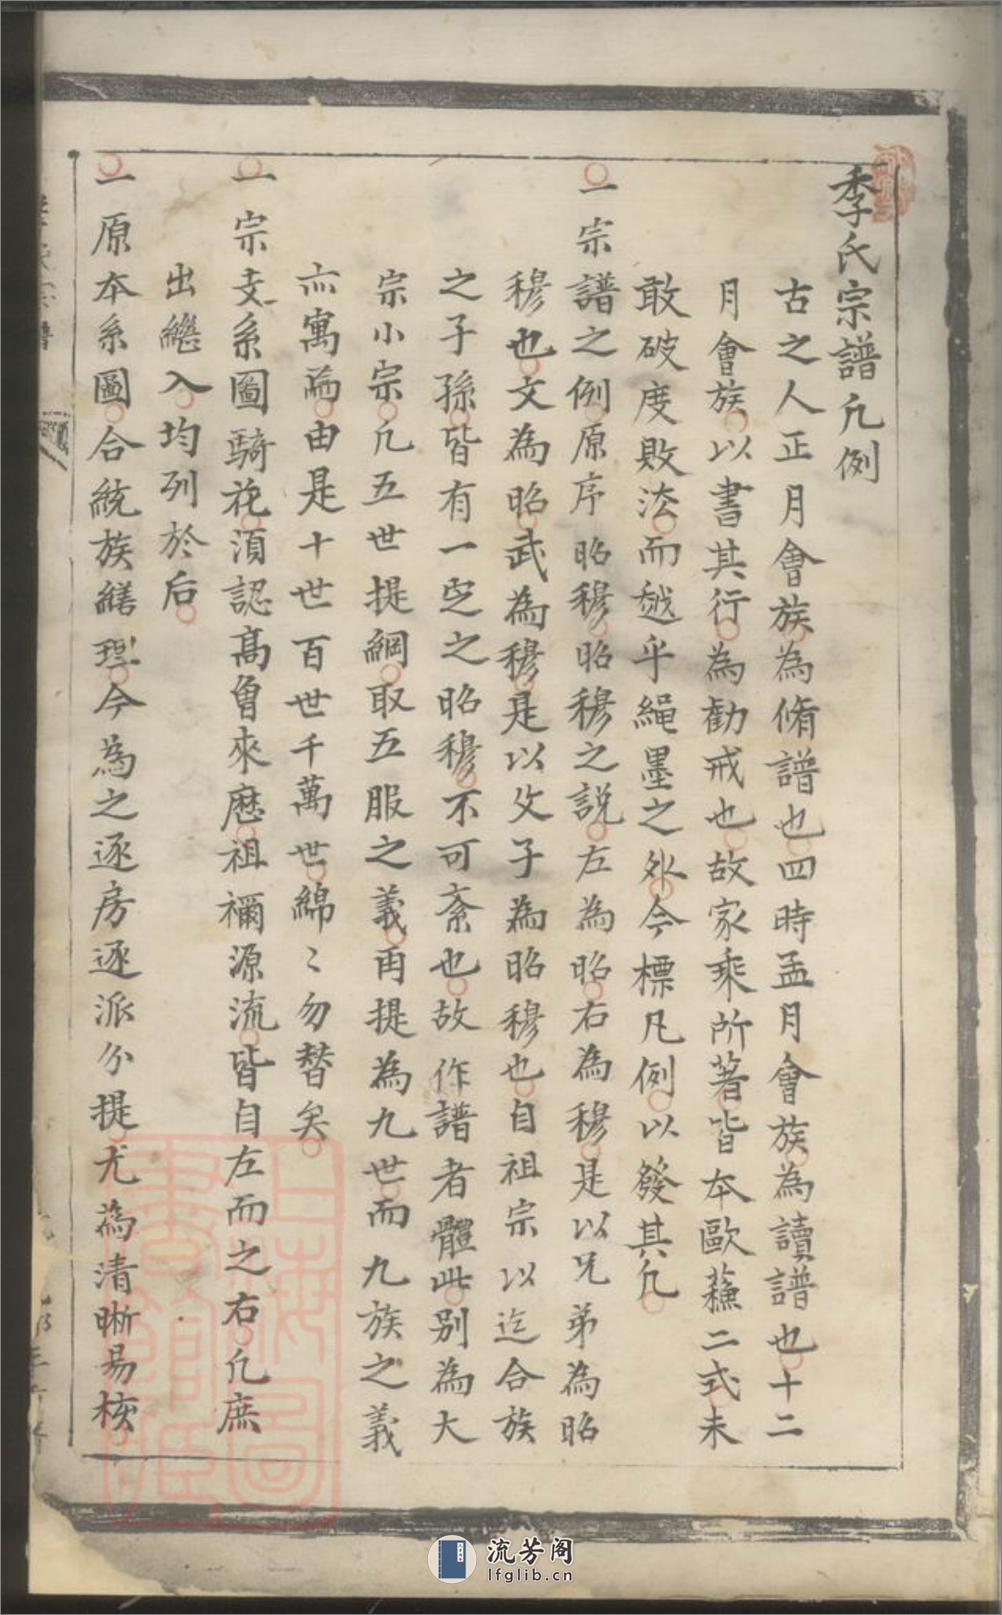 季氏宗譜凢例
古之人正月會族為脩譜也四時孟月會族為讀譜也十二
月會族以書其行為勸戒也故家乘所著皆本歐蘓二式未
敢破度敗法而越乎繩墨之外今標凡例以發其凢
一宗譜之例原序昭穆昭穆之説左為昭右為穆是以兄弟為昭
穆也文為昭武為穆是以父子為昭穆也自祖宗以迄合族
之子孫皆有一定之昭穆不可紊也故作譜者體此別為大
宗小宗凢五世提綱取五服之義再提為九世而九族之義
亦寓焉由是十世百世千萬世綿〻勿替矣
一宗支系圖騎花湏認髙曾來歷祖禰源流皆自左而之右凢庶
出繼入均列於后
一原本系圖合統族繕理今為之逐房逐派分提尤為清晰易核
流芳阁
lfglib.cn